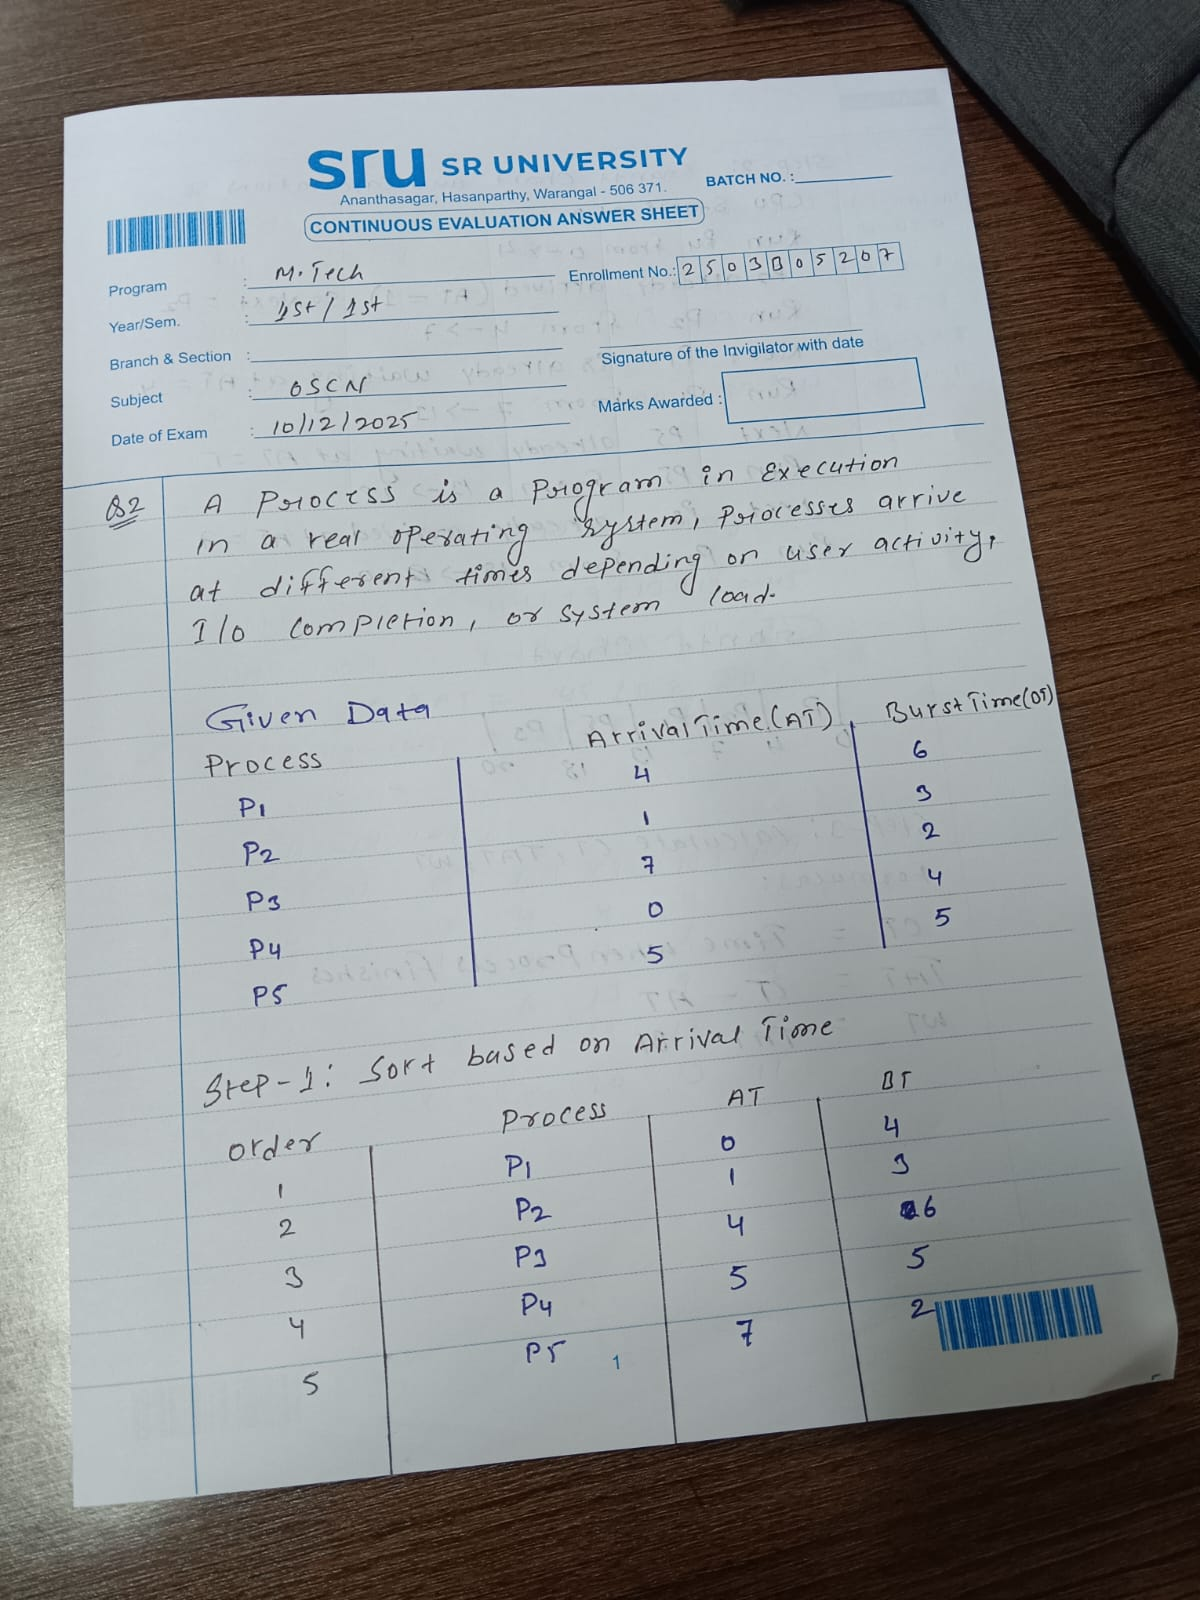 sru SR UNIVERSITY
Ananthasagar, Hasanparthy, Warangal - 506 371.
BATCH NO. :
CONTINUOUS EVALUATION ANSWER SHEET
Program : M.Tech
Enrollment No.: 2503B05207
Year/Sem. : 1st / 1st
Branch & Section :
Signature of the Invigilator with date
Subject : OSCN
Marks Awarded :
Date of Exam : 10/12/2025
Q2 A Process is a Program in Execution
in a real operating system, Processes arrive
at different times depending on user activity,
I/o completion, or system load.
Given Data
Process Arrival Time (AT) Burst Time (BT)
P1 4 6
P2 1 3
P3 7 2
P4 0 4
P5 5 5
Step-1: Sort based on Arrival Time
order Process AT BT
1 P1 0 4
2 P2 1 3
3 P3 4 6
4 P4 5 5
5 P5 7 2
1